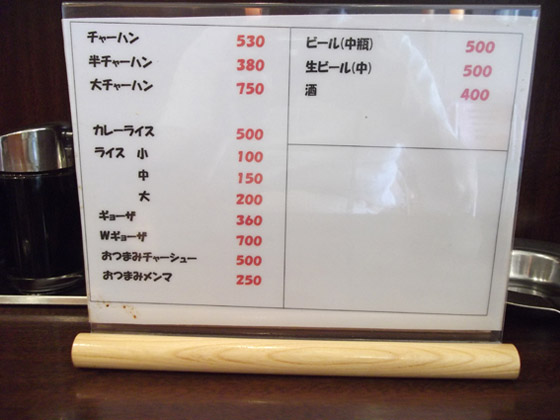 チャーハン 530
半チャーハン 380
大チャーハン 750
カレーライス 500
ライス 小 100
中 150
大 200
ギョーザ 360
Wギョーザ 700
おつまみチャーシュー 500
おつまみメンマ 250
ビール(中瓶) 500
生ビール(中) 500
酒 400